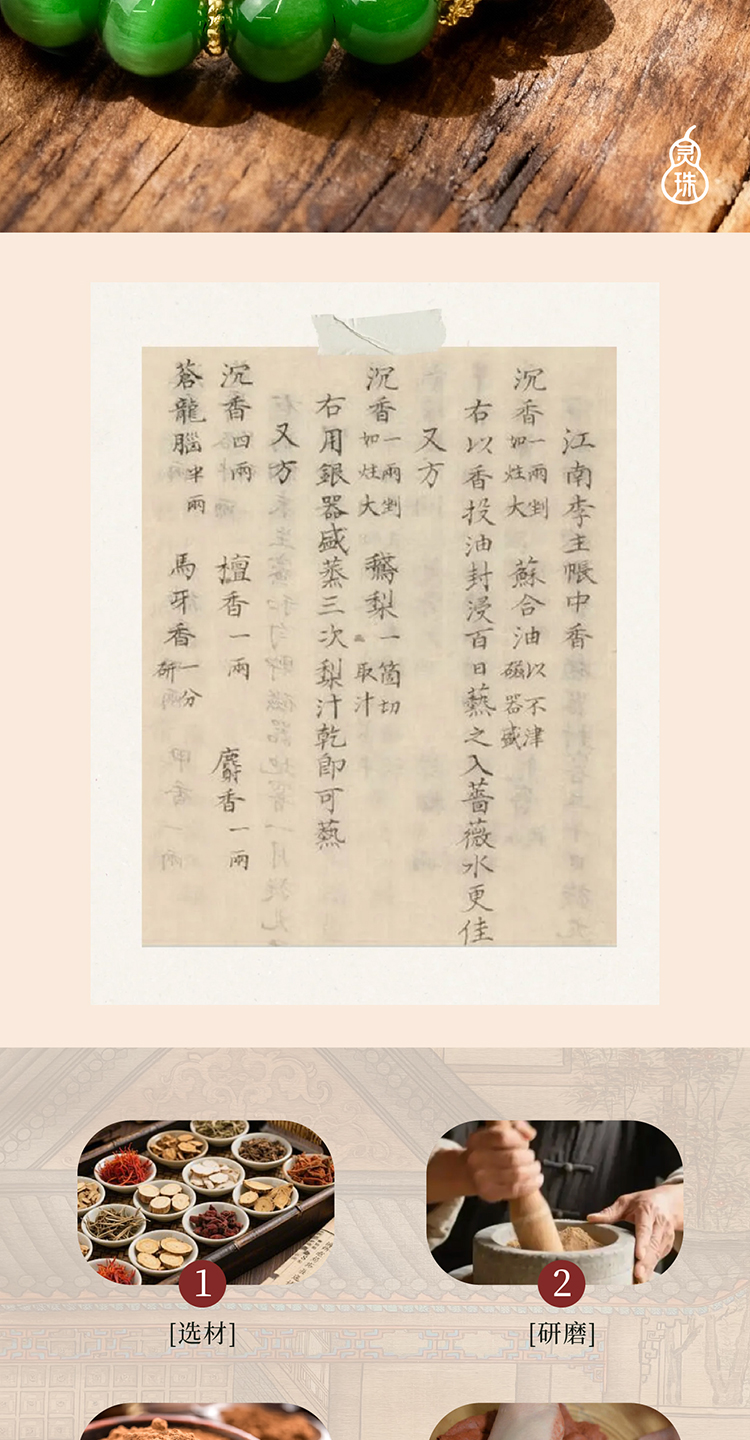 灵珠
江南李主帳中香
沉香一兩剉如炷大 蘇合油以不津磁器盛
右以香投油封浸百日爇之入薔薇水更佳
又方
沉香一兩剉如炷大 鵝梨一箇切取汁
右用銀器盛蒸三次梨汁乾即可爇
又方
沉香四兩 檀香一兩 麝香一兩
蒼龍腦半兩 馬牙香一分研
1
[选材]
2
[研磨]